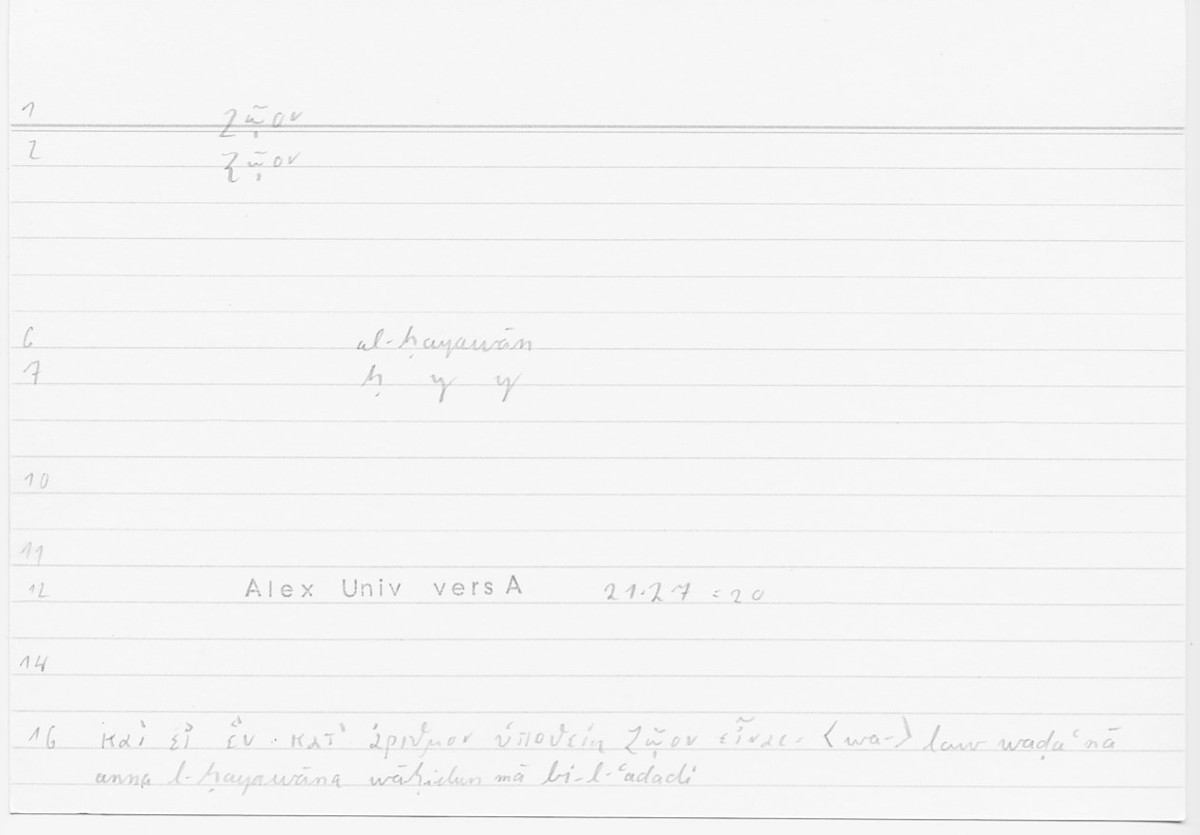 1 ζῷον
2 ζῷον
6 al-ḥayawān
7 ḥ y y
10
11
12 Alex Univ vers A 21.27 = 20
14
16 καὶ εἰ ἓν · κατ' ἀριθμον ὑποθείη ζῷον εἶναι = <wa-> law waḍaʿnā
anna l-ḥayawāna wāḥidun mā bi-l-ʿadadi